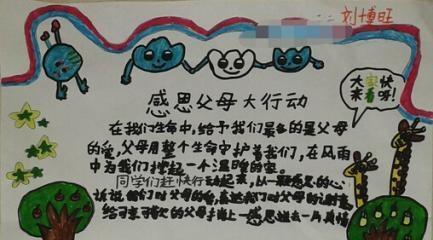 刘博旺
感恩父母大行动
大家快
来看呀!
在我们生命中,给予我们最多的是父母
的爱,父母用整个生命守护着我们,在风雨
中为我们撑起一个温暖的家
同学们赶快行动起来,以一颗感恩的心
诉说他们对父母的爱,表达我们对父母的谢意
给可亲可敬的父母亲捎上一感恩送去一片真情